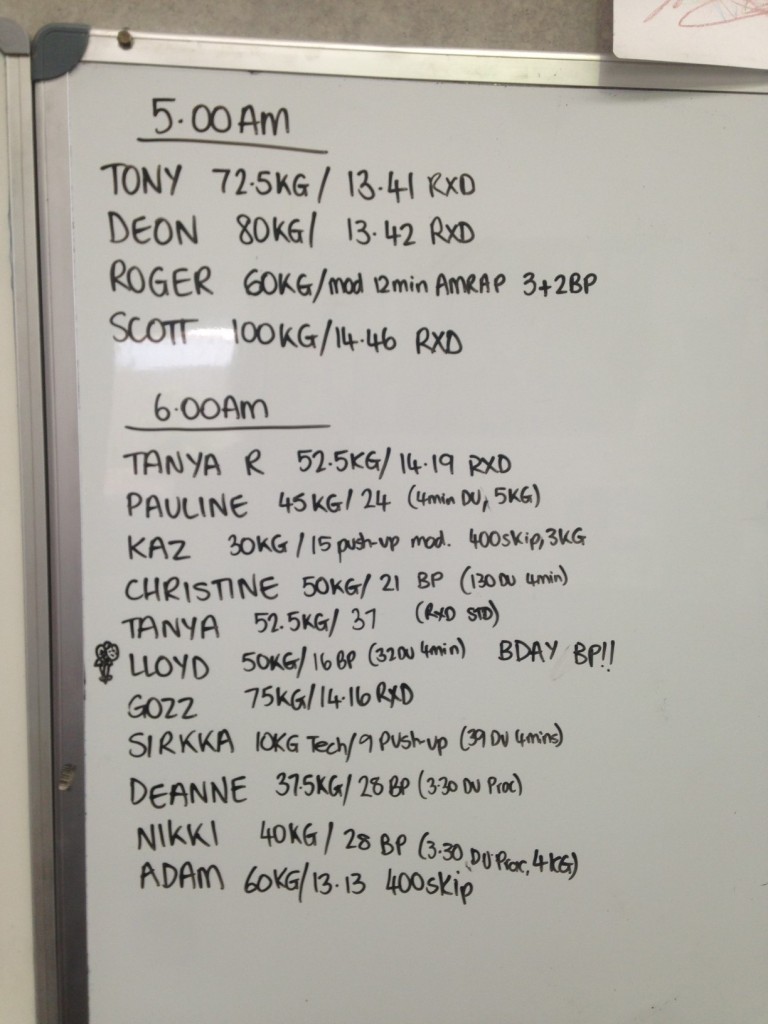 5.00AM
TONY 72.5KG/ 13.41 RXD
DEON 80KG/ 13.42 RXD
ROGER 60KG/mod 12min AMRAP 3+2BP
SCOTT 100KG/14.46 RXD
6.00AM
TANYA R 52.5KG/ 14.19 RXD
PAULINE 45KG/ 24 (4min DU, 5KG)
KAZ 30KG/15 push-up mod. 400skip, 3KG
CHRISTINE 50KG/ 21 BP (130 DU 4min)
TANYA 52.5KG/ 37 (RXD STD)
LLOYD 50KG/16 BP (32DU 4min) BDAY BP!!
GOZZ 75KG/14.16 RXD
SIRKKA 10KG Tech/9 Push-up (39 DU 4mins)
DEANNE 37.5KG/ 28 BP (3.30 DU Prac)
NIKKI 40KG/ 28 BP (3.30 DU Prac, 4KG)
ADAM 60KG/13.13 400skip